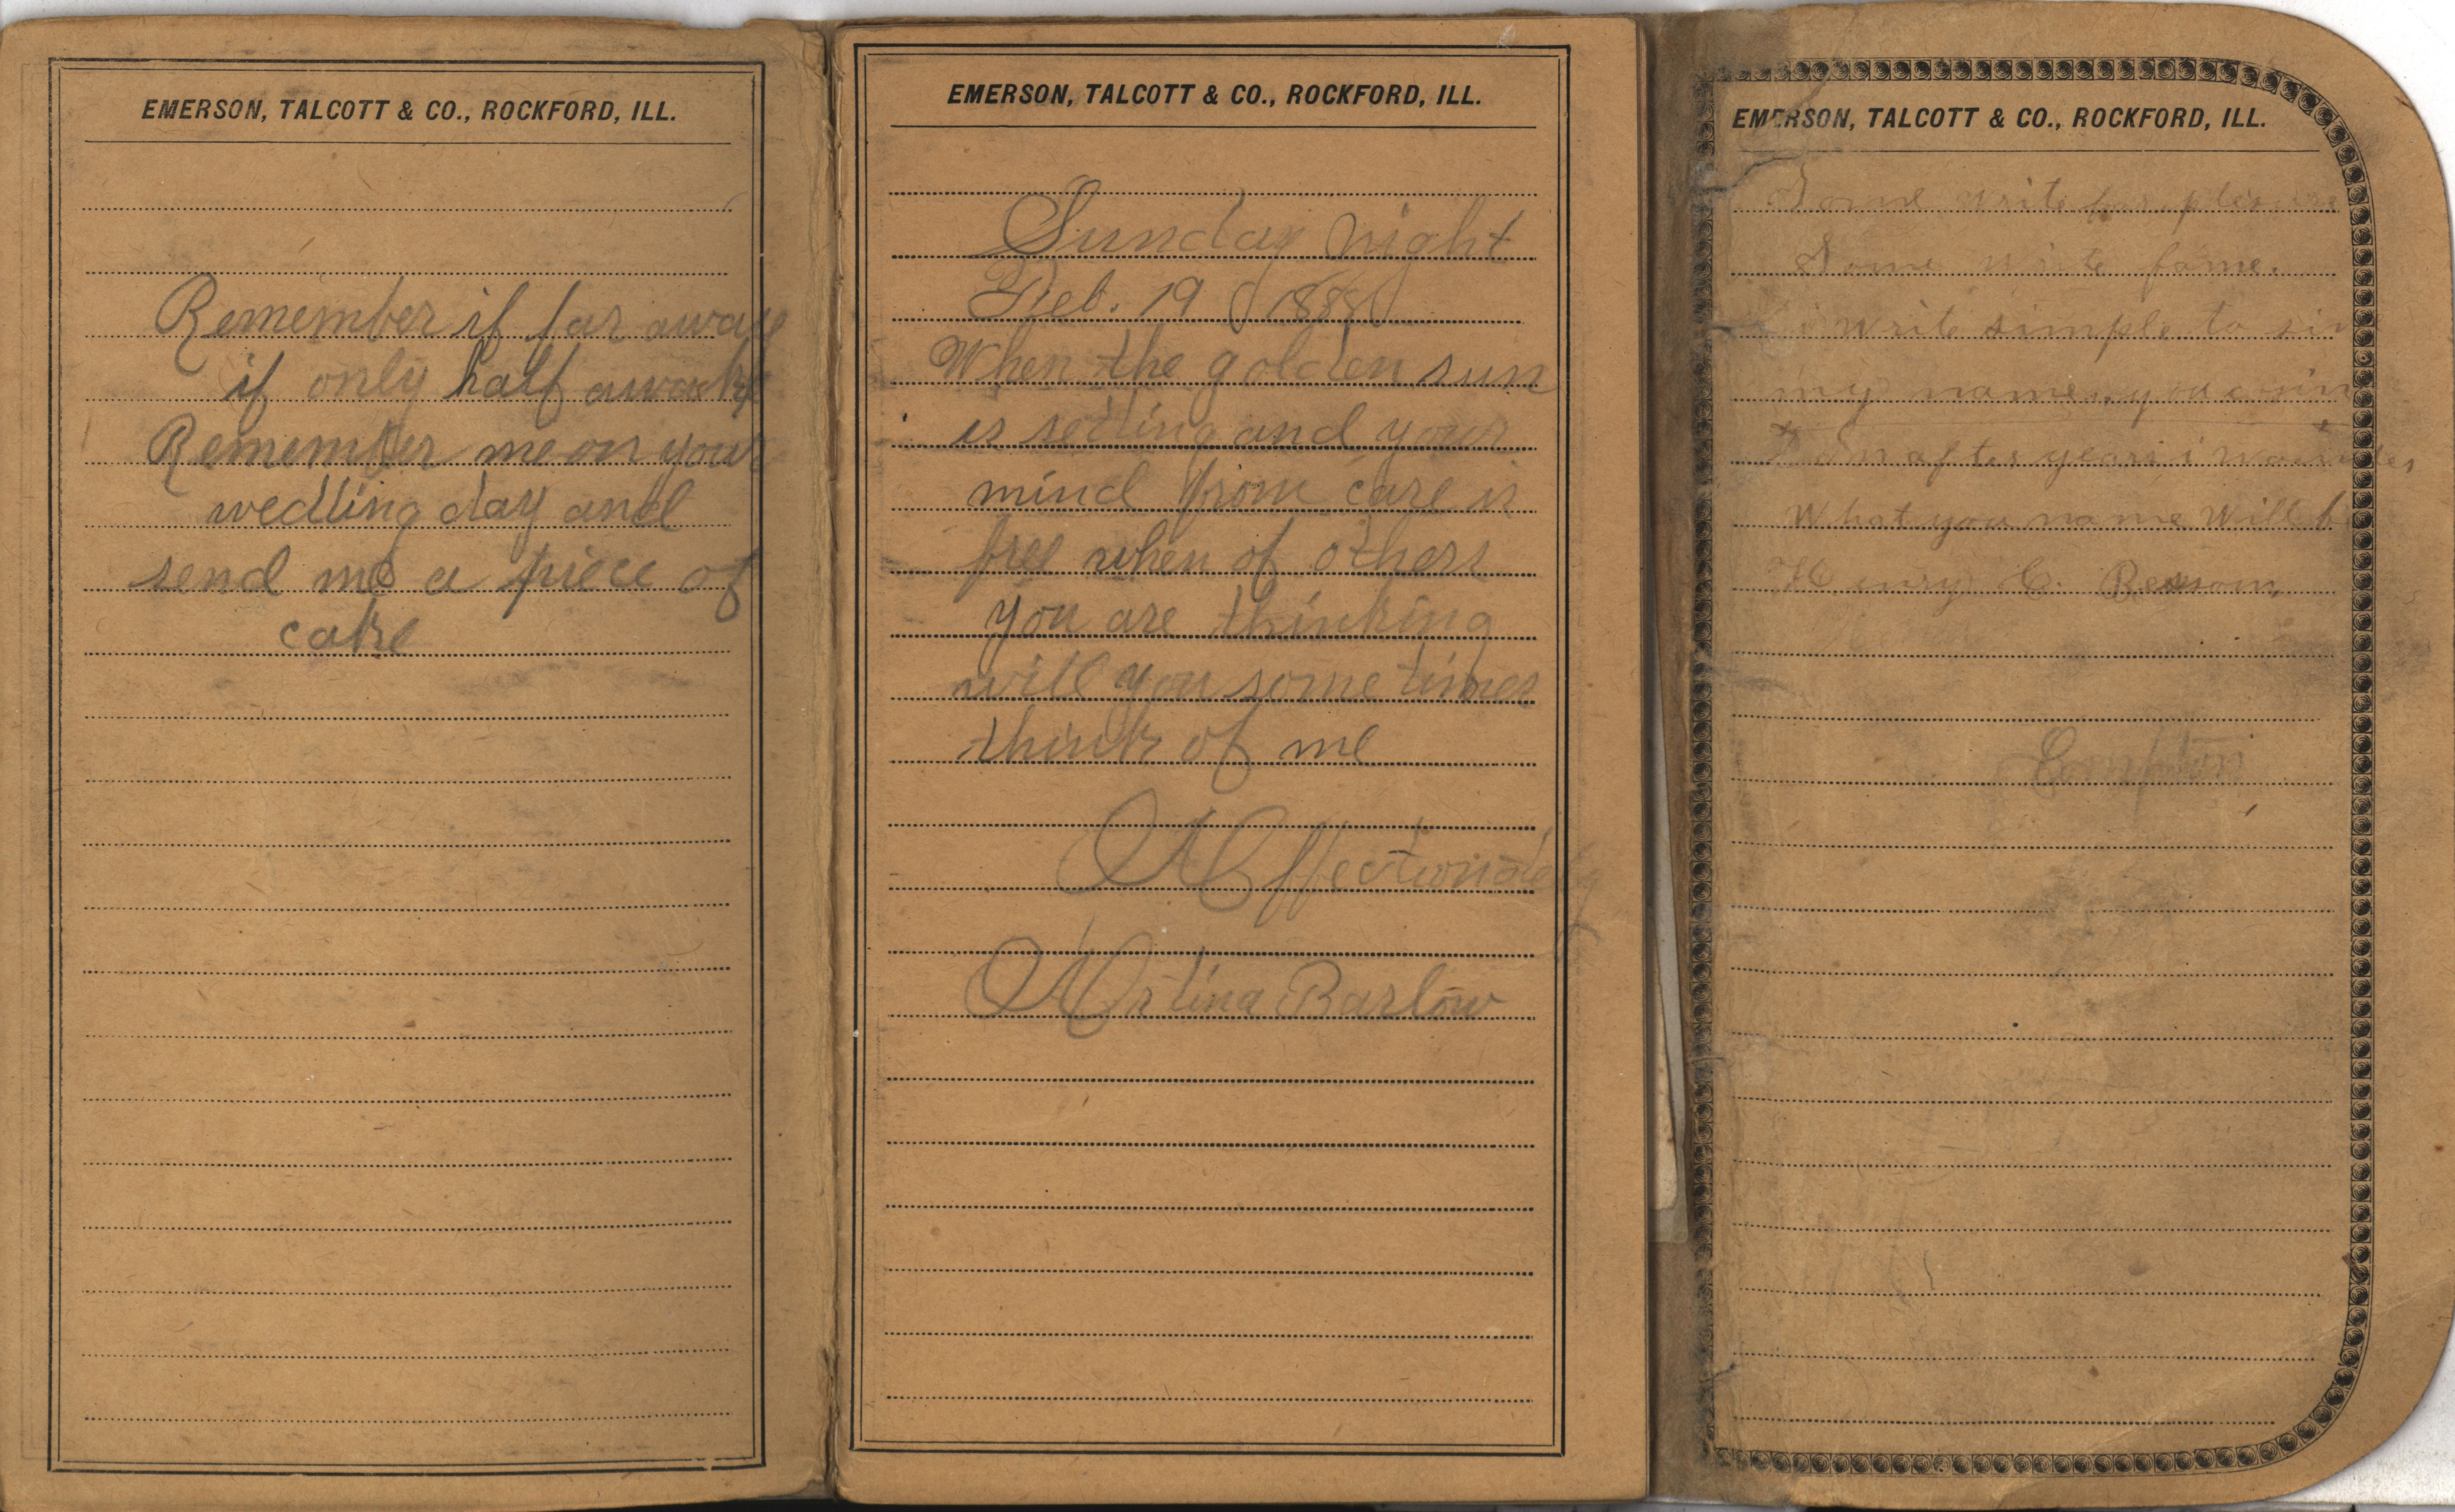 EMERSON, TALCOTT & CO., ROCKFORD, ILL.
Remember if far away
if only half awake
Remember me on your
wedding day and
send me a piece of
cake
EMERSON, TALCOTT & CO., ROCKFORD, ILL.
Sunday night
Feb. 19 1888
When the golden sun
is setting and your
mind from care is
free when of others
you are thinking
will you some times
think of me
Affectionately
Barlow
EMERSON, TALCOTT & CO., ROCKFORD, ILL.
Some write for plesure
Some write fame.
i write simple to sin
my name. you
In after years i wonder
What you name will be
Henry C.
Compton